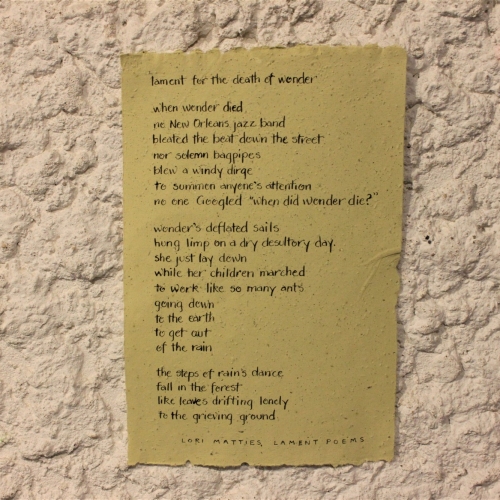 lament for the death of wonder
when wonder died
no New Orleans jazz band
bleated the beat down the street
nor solemn bagpipes
blew a windy dirge
to summon anyone's attention
no one Googled "when did wonder die?"
wonder's deflated sails
hung limp on a dry desultory day.
she just lay down
while her children marched
to work like so many ants
going down
to the earth
to get out
of the rain
the steps of rain's dance
fall in the forest
like leaves drifting lonely
to the grieving ground.
LORI MATTIES, LAMENT POEMS